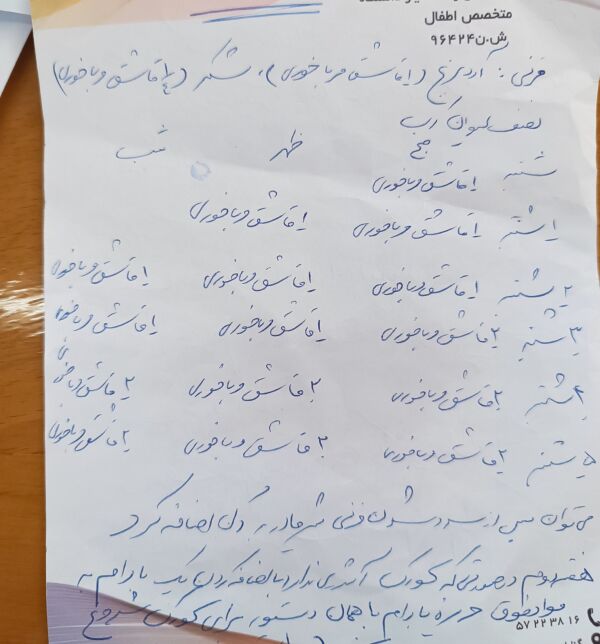 متخصص اطفال
ش.ن ۹۶۴۲۴
فرنی: آرد برنج (۱ قاشق مرباخوری)، شکر (۱/۲ قاشق مرباخوری)
نصف لیوان آب
صبح ظهر شب
شنبه ۱ قاشق مرباخوری
۱ شنبه ۱ قاشق مرباخوری ۱ قاشق مرباخوری
۲ شنبه ۱ قاشق مرباخوری ۱ قاشق مرباخوری ۱ قاشق مرباخوری
۳ شنبه ۲ قاشق مرباخوری ۱ قاشق مرباخوری ۱ قاشق مرباخوری
۴ شنبه ۲ قاشق مرباخوری ۲ قاشق مرباخوری ۲ قاشق مرباخوری
۵ شنبه ۲ قاشق مرباخوری ۲ قاشق مرباخوری ۲ قاشق مرباخوری
می توان پس از سرد شدن فرنی شیر مادر به آن اضافه کرد
هفته دوم در صورتی که کودک آلرژی ندارد با اضافه کردن یک بادام به
مواد فوق حریره بادام با همان دستور برای کودک شروع
۵۷۲۲۳۸۱۶